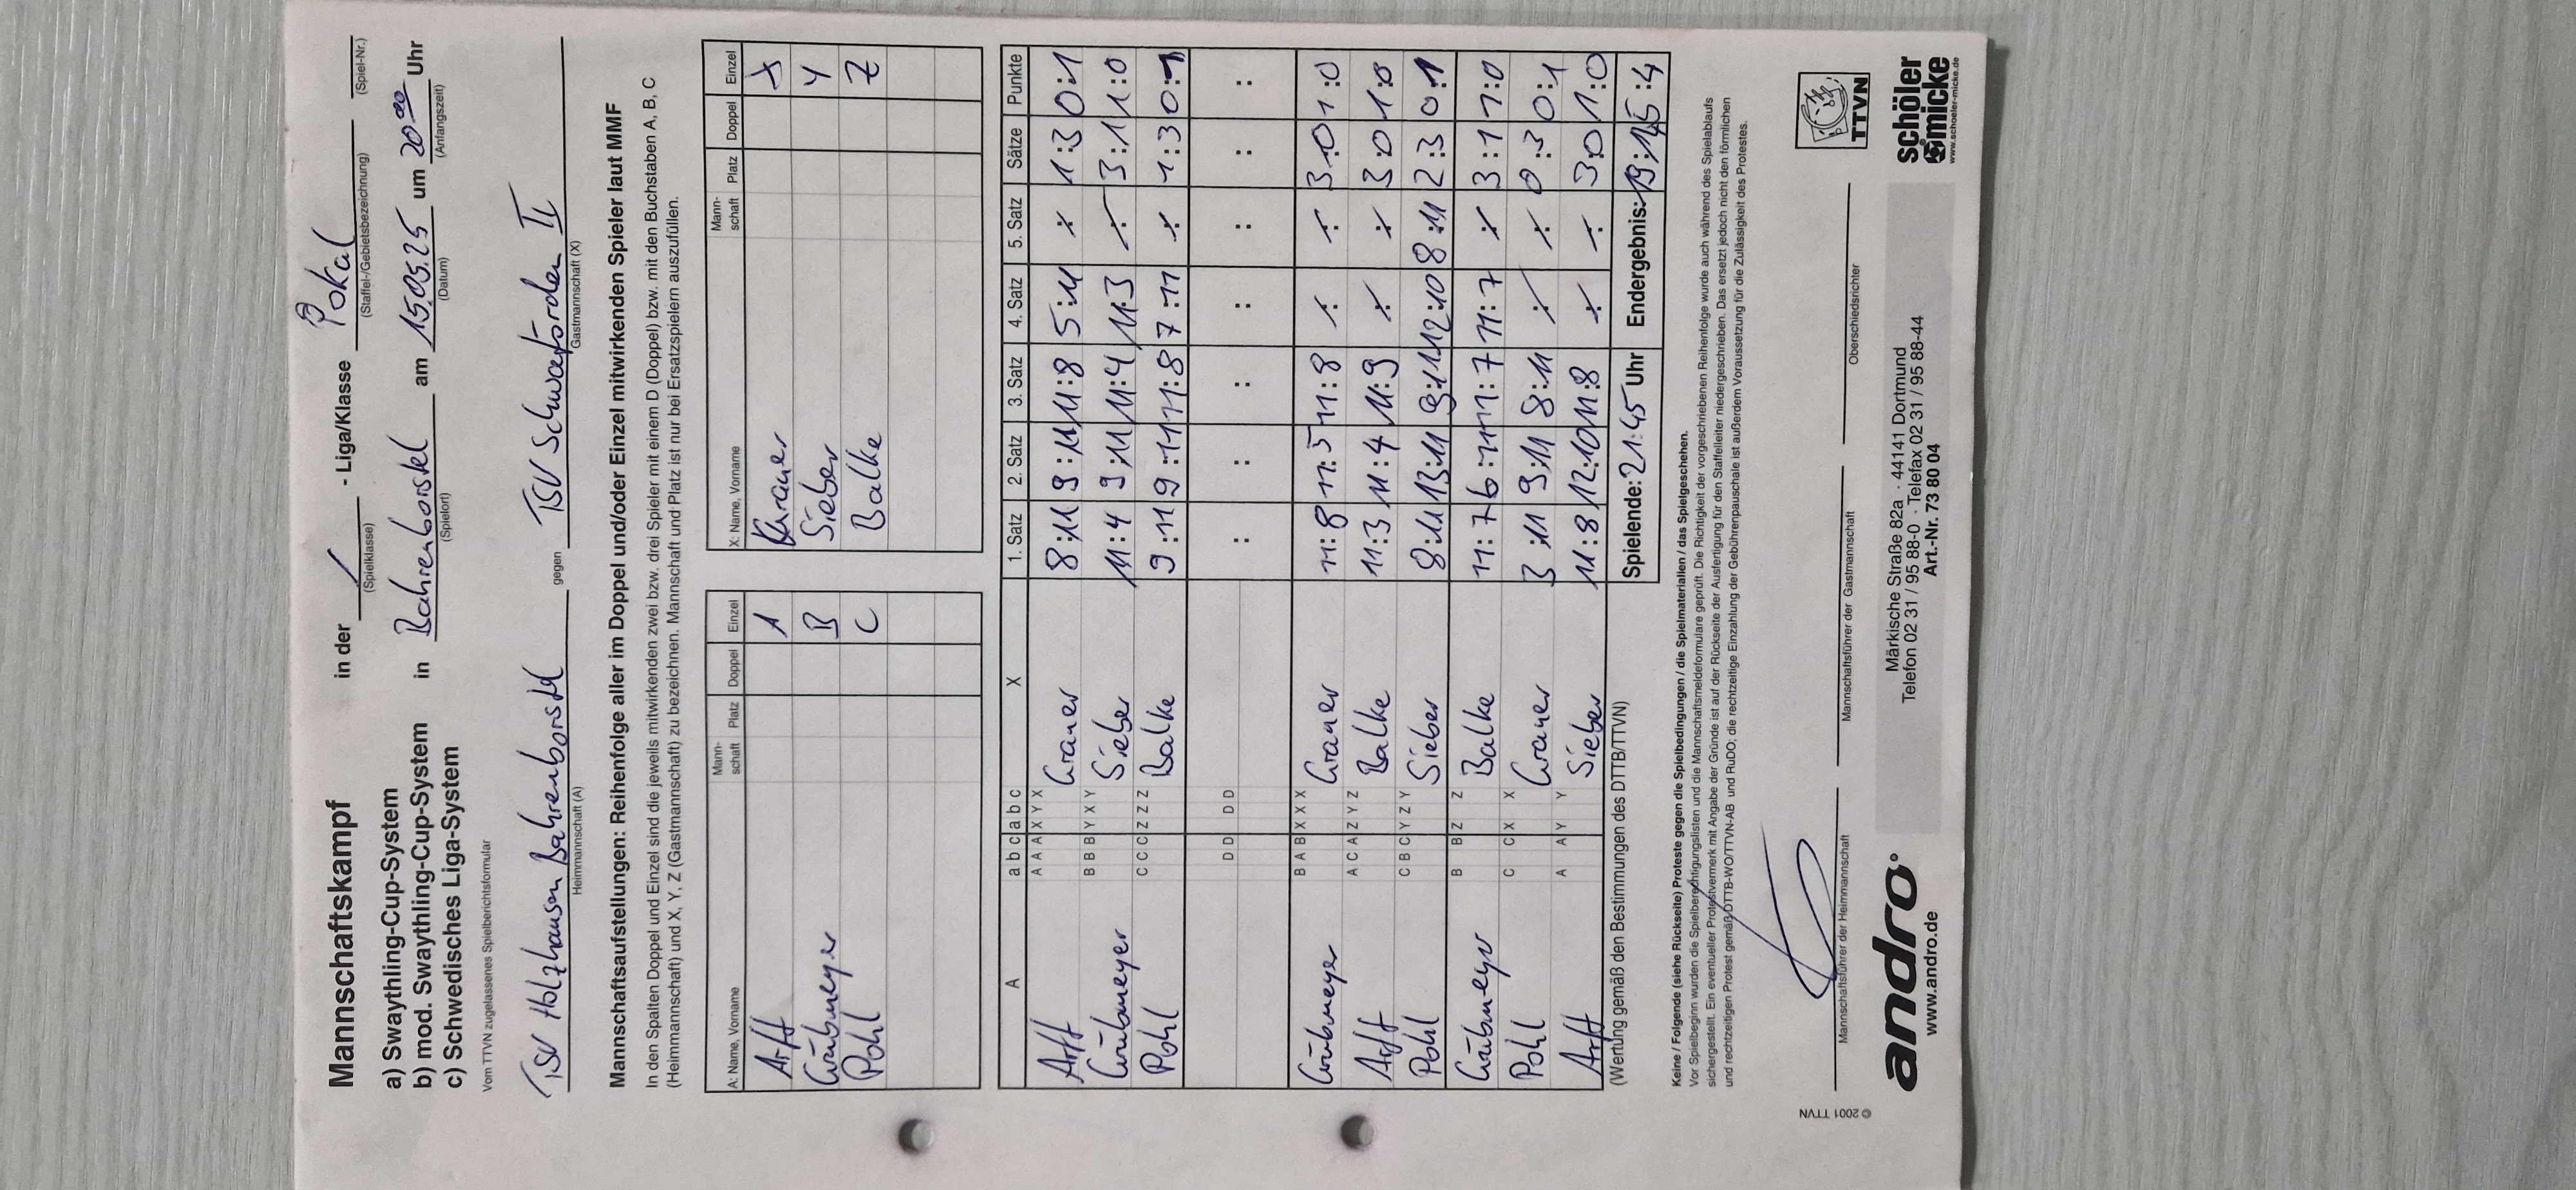 Mannschaftskampf in der / - Liga/Klasse Pokal
(Spielklasse) (Staffel-/Gebietsbezeichnung) (Spiel-Nr.)
a) Swaythling-Cup-System
b) mod. Swaythling-Cup-System in Bahrenborstel am 15.05.25 um 20⁰⁰ Uhr
(Spielort) (Datum) (Anfangszeit)
c) Schwedisches Liga-System
Vom TTVN zugelassenes Spielberichtsformular
TSV Holzhausen Bahrenborstel gegen TSV Schwaförden II
Heimmannschaft (A) Gastmannschaft (X)
Mannschaftsaufstellungen: Reihenfolge aller im Doppel und/oder Einzel mitwirkenden Spieler laut MMF
In den Spalten Doppel und Einzel sind die jeweils mitwirkenden zwei bzw. drei Spieler mit einem D (Doppel) bzw. mit den Buchstaben A, B, C
(Heimmannschaft) und X, Y, Z (Gastmannschaft) zu bezeichnen. Mannschaft und Platz ist nur bei Ersatzspielern auszufüllen.
A: Name, Vorname Mann-schaft Platz Doppel Einzel X: Name, Vorname Mann-schaft Platz Doppel Einzel
Arff A Grauer X
Grübmeyer B Sieber Y
Pohl C Balke Z
A a b c a b c X 1. Satz 2. Satz 3. Satz 4. Satz 5. Satz Sätze Punkte
Arff A A A X Y X Grauer 8:11 9:11 11:8 5:11 / 1:3 0:1
Grübmeyer B B B Y X Y Sieber 11:4 9:11 11:4 11:3 / 3:1 1:0
Pohl C C C Z Z Z Balke 9:11 9:11 11:8 7:11 / 1:3 0:1
: : : : : : :
D D D D
Grübmeyer B A B X X X Grauer 11:8 11:5 11:8 / / 3:0 1:0
Arff A C A Z Y Z Balke 11:3 11:4 11:9 / / 3:0 1:0
Pohl C B C Y Z Y Sieber 8:11 13:11 9:11 12:10 8:11 2:3 0:1
Grübmeyer B B Z Z Balke 11:7 6:11 11:7 11:7 / 3:1 1:0
Pohl C C X X Grauer 3:11 9:11 8:11 / / 0:3 0:1
Arff A A Y Y Sieber 11:8 12:10 11:8 / / 3:0 1:0
(Wertung gemäß den Bestimmungen des DTTB/TTVN) Spielende: 21:45 Uhr Endergebnis: 5:4
Keine / Folgende (siehe Rückseite) Proteste gegen die Spielbedingungen / die Spielmaterialien / das Spielgeschehen.
Vor Spielbeginn wurden die Spielberechtigungslisten und die Mannschaftsmeldeformulare geprüft. Die Richtigkeit der vorgeschriebenen Reihenfolge wurde auch während des Spielablaufs
sichergestellt. Ein eventueller Protestvermerk mit Angabe der Gründe ist auf der Rückseite der Ausfertigung für den Staffelleiter niedergeschrieben. Das ersetzt jedoch nicht den förmlichen
und rechtzeitigen Protest gemäß DTTB-WO/TTVN-AB und RuDO; die rechtzeitige Einzahlung der Gebührenpauschale ist außerdem Voraussetzung für die Zulässigkeit des Protestes.
TTVN
Mannschaftsführer der Heimmannschaft Mannschaftsführer der Gastmannschaft Oberschiedsrichter
© 2001 TTVN
andro
www.andro.de
Märkische Straße 82a · 44141 Dortmund
Telefon 02 31 / 95 88-0 · Telefax 02 31 / 95 88-44
Art.-Nr. 73 80 04
schöler
micke
www.schoeler-micke.de